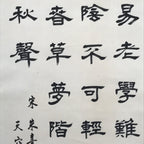 易老學難
陰不可輕
春草夢階
秋聲
宋 朱熹
天